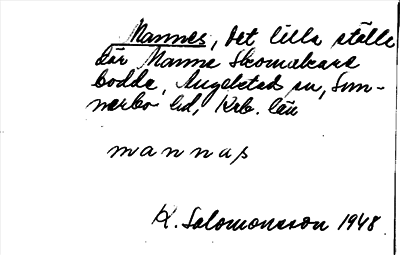 Mannes, det lilla ställe
där Manne Skomakare
bodde, Angelstad sn, Sun-
nerbo hd, Krb. län
mannas
K. Salomonsson 1948